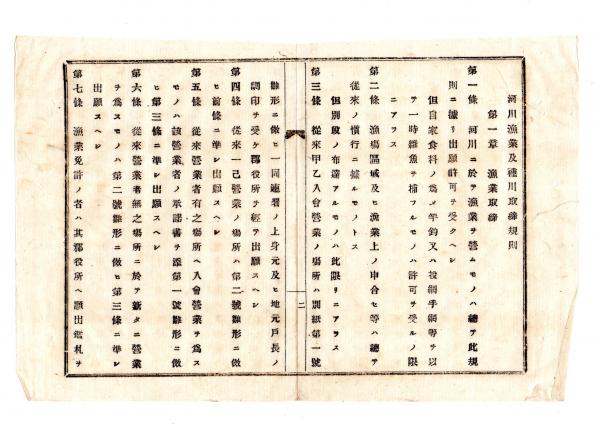 河川漁業及種川取締規則
第一章 漁業取締
第一條 河川ニ於テ漁業ヲ營ムモノハ總テ此規
則ニ據リ出願許可ヲ受クヘシ
但自家食料ノ爲メ竿釣又ハ投網手網等ヲ以
テ一時雜魚ヲ捕フルモノハ許可ヲ受ルノ限
ニアラス
第二條 漁場區域及ヒ漁業上ノ申合セ等ハ總テ
從來ノ慣行ニ據ルモノトス
但別段ノ布達アルモノハ此限リニアラス
第三條 從來甲乙入會營業ノ場所ハ別紙第一號
二
雛形ニ倣ヒ一同連署ノ上身元及ヒ地元戸長ノ
調印ヲ受ケ郡役所ヲ經テ出願スヘシ
第四條 從來一己營業ノ場所ハ第二號雛形ニ倣
ヒ前條ニ準シ出願スヘシ
第五條 從來營業者有之場所ヘ入會營業ヲ爲ス
モノハ該營業者ノ承諾書ヲ添第一號雛形ニ倣
ヒ第三條ニ準シ出願スヘシ
第六條 從來營業者無之場所ニ於テ新タニ營業
ヲ爲スモノハ第二號雛形ニ倣ヒ第三條ニ準シ
出願スヘシ
第七條 漁業免許ノ者ハ其郡役所ヘ願出鑑札ヲ